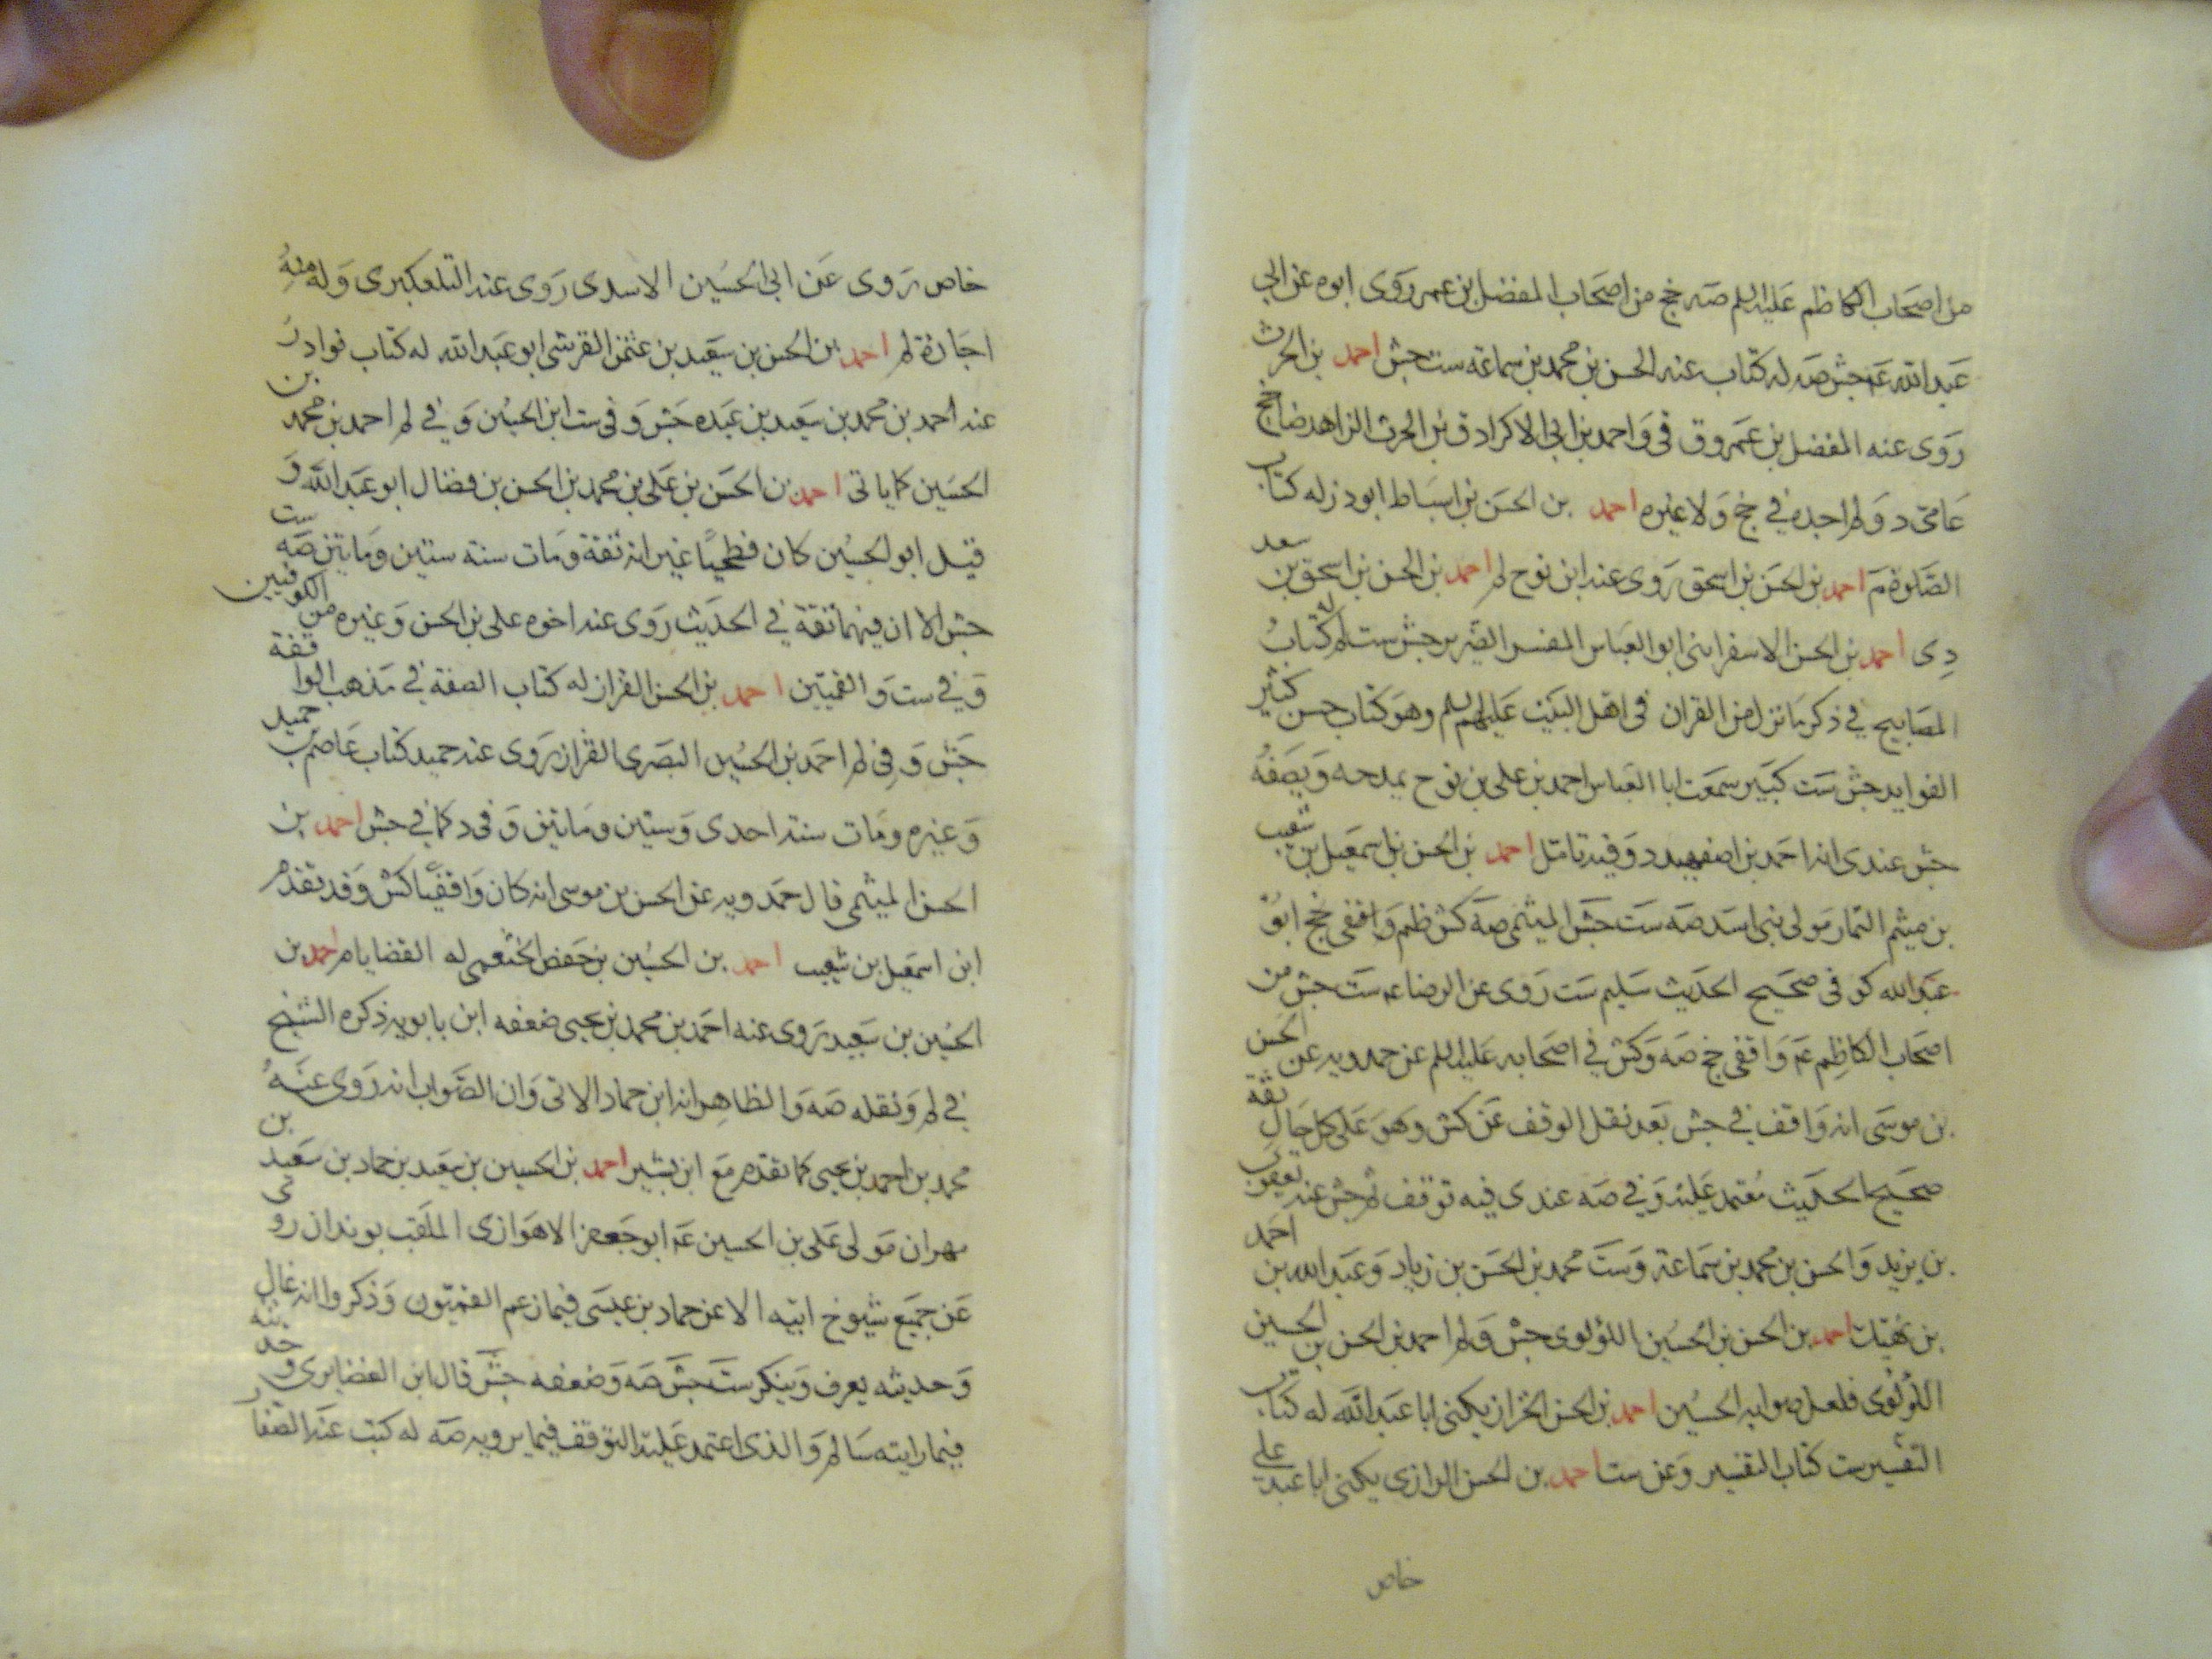 من اصحاب الكاظم عليه السلم صه خج من اصحاب المفضل بن عمر روى ابوه عن ابي
عبد الله عم جش صه له كتاب عنه الحسن بن محمد بن سماعة ست جش احمد بن الحرث
روى عنه المفضل بن عمرو ق في و احمد بن ابي الاكراد ق بن الحرث الزاهد ضا خج
عامي د و لم اجده في خج ولا غيره احمد بن الحسن بن اسباط ابو ذر له كتاب
الصلوة م احمد بن الحسن بن اسحق روى عنه ابن نوح لم احمد بن الحسن بن اسحق بن سعد
دى احمد بن الحسن الاسفرايني ابو العباس المفسر الضرير جش ست له كتاب
المصابيح في ذكر ما نزل من القران في اهل البيت عليهم السلم وهو كتاب حسن كثير
الفوايد جش ست كبير سمعت ابا العباس احمد بن علي بن نوح يمدحه و يصفه
جش عندى انه احمد بن اصفهبد د و فيه تامل احمد بن الحسن بن اسمعيل بن شعيب
بن ميثم التمار مولى بني اسد صه ست جش الميثمي صه كش ظم واقفي خج ابو
عبد الله كوفي صحيح الحديث سليم ست روى عن الرضا عم ست جش من
اصحاب الكاظم عم واقفي خج صه و كش في اصحابه عليه السلم عن حمدويه عن الحسن
بن موسى انه واقف في جش بعد نقل الوقف عن كش وهو على كل حال ثقة
صحيح الحديث معتمد عليه و في صه عندى فيه توقف لم جش عنه يعقوب
بن يزيد والحسن بن محمد بن سماعة و ست محمد بن الحسن بن زياد وعبد الله بن احمد
بن نهيك احمد بن الحسن بن الحسين اللؤلوى جش و لم احمد بن الحسن بن الحسين
اللؤلوى فلعل صوابه الحسين احمد بن الحسن الخزاز يكنى ابا عبد الله له كتاب
التفسير ست كتاب التفسير وعن ست احمد بن الحسن الرازى يكنى ابا علي
خاص
خاص روى عن ابي الحسين الاسدى روى عنه التلعكبرى وله منه
اجازة لم احمد بن الحسن بن سعيد بن عثمن القرشي ابو عبد الله له كتاب نوادر
عنه احمد بن محمد بن سعيد بن عبده جش و في ست ابن الحسين و في لم احمد بن محمد بن
الحسين كما ياتى احمد بن الحسن بن علي بن محمد بن الحسن بن فضال ابو عبد الله و
قيل ابو الحسين كان فطحيا غير انه ثقة ومات سنة ستين وماتين صه ست
جش الا ان فيهما ثقة في الحديث روى عنه اخوه علي بن الحسن وغيره من الكوفيين
و في ست والقميين احمد بن الحسن القزاز له كتاب الصفة في مذهب الواقفة
جش و في لم احمد بن الحسين البصرى القزاز روى عنه حميد كتاب عاصم بن حميد
وغيره ومات سنة احدى وستين وماتين و في د كما في جش احمد بن
الحسن الميثمي قال حمدويه عن الحسن بن موسى انه كان واقفيا كش وقد تقدم
ابن اسمعيل بن شعيب احمد بن الحسين بن حفص الخثعمي له القضايا م احمد بن
الحسين بن سعيد روى عنه احمد بن محمد بن يحيى ضعفه ابن بابويه ذكره الشيخ
في لم ونقله صه والظاهر انه ابن حماد الاتى وان الصواب انه روى عنه
محمد بن احمد بن يحيى كما تقدم مع ابن بشير احمد بن الحسين بن سعيد بن حماد بن سعيد بن
مهران مولى علي بن الحسين عم ابو جعفر الاهوازى الملقب بوندان روى
عن جميع شيوخ ابيه الا عن حماد بن عيسى فيما زعم القميون وذكروا انه غال
وحديثه يعرف وينكر ست جش صه وضعفه جش قال ابن الغضايرى وحديثه
فيما رايته سالم والذى اعتمد عليه التوقف فيما يرويه صه له كتب عنه الصفار